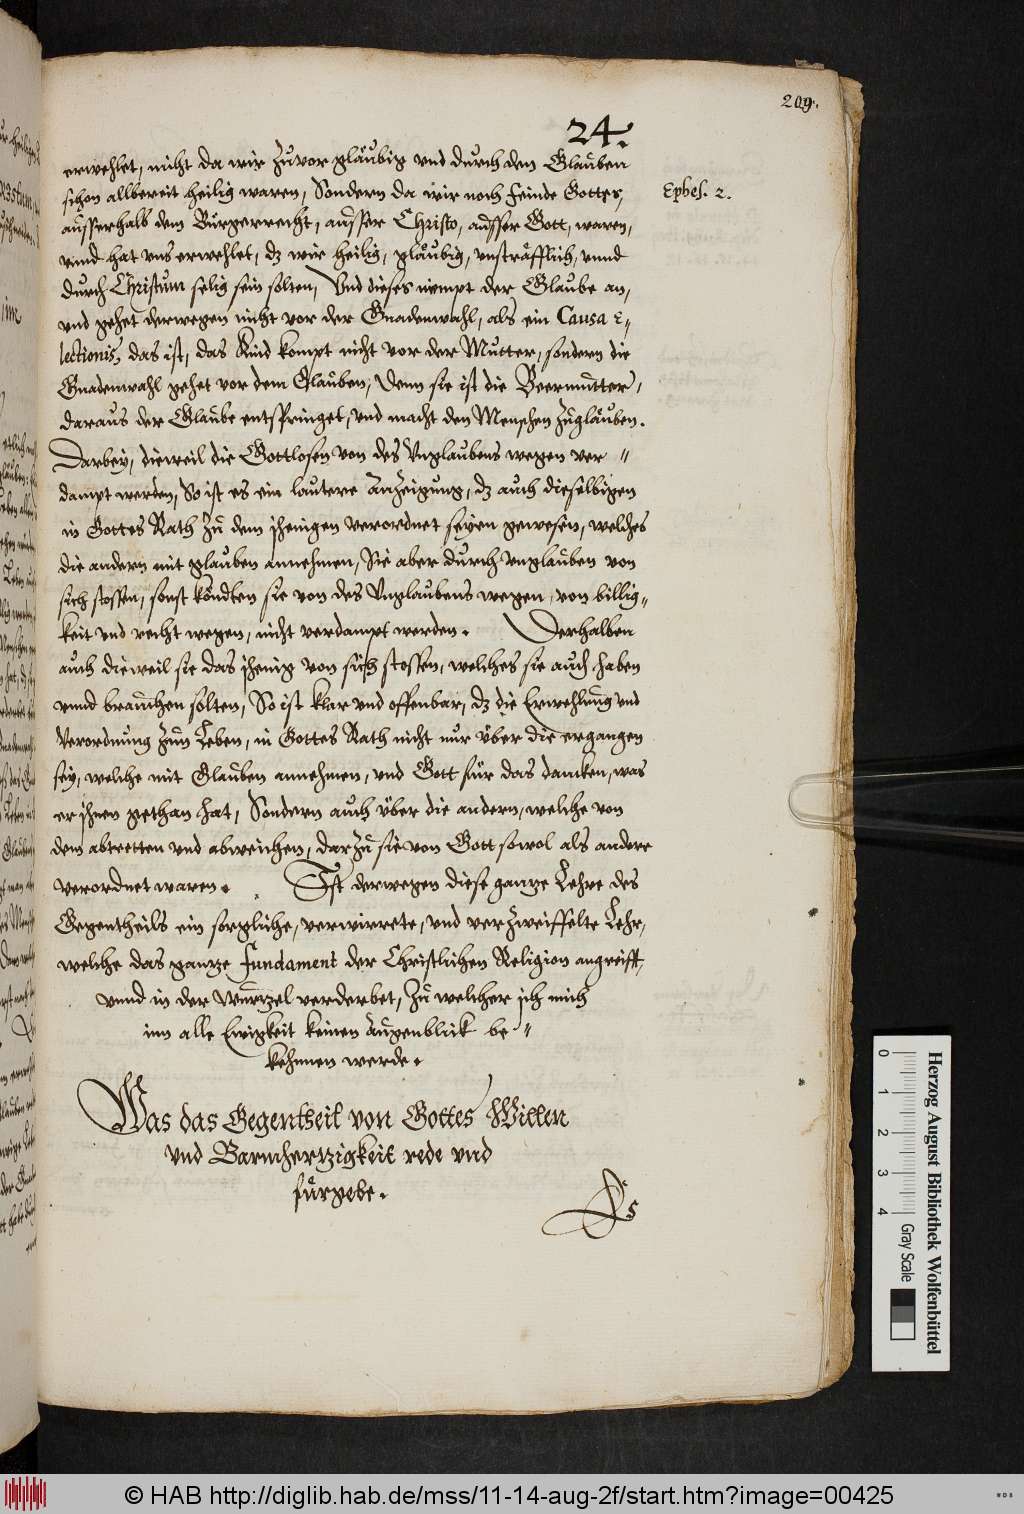 209.
24.
erwehlet, nicht da wir zuvor gläubig vnd durch den Glauben
schon allbereit heilig waren, Sondern da wir noch Feinde Gottes,
ausserhalb dem Bürgerrecht, ausser Christo, ausser Gott, waren,
Ephes. 2.
vnnd hat vns erwehlet, dz wir heilig, gläubig, vnsträfflich, vnnd
durch Christum selig sein solten, Vnd dieses nimpt der Glaube an,
vnd gehet derwegen nicht vor der Gnadenwahl, als ein Causa E-
lectionis, das ist, das Kind kompt nicht vor der Mutter, sondern die
Gnadenwahl gehet vor dem Glauben, Denn sie ist die Beermutter,
daraus der Glaube entspringet, vnd macht den Menschen zugläuben.
Darbey, dieweil die Gottlosen von des Vnglaubens wegen ver-
dampt werden, So ist es ein lautere Anzeigung, dz auch dieselbigen
in Gottes Rath zu dem jhenigen verordnet seyen gewesen, welches
die andern mit glauben annehmen, Sie aber durch vnglauben von
sich stossen, sonst köndten sie von des Vnglaubens wegen, von billig-
keit vnd recht wegen, nicht verdampt werden. Derhalben
auch dieweil sie das jhenig von sich stossen, welches sie auch haben
vnnd brauchen solten, So ist klar vnd offenbar, dz die Erwehlung vnd
Verordnung zum Leben, in Gottes Rath nicht nur über die ergangen
sey, welche mit Glauben annehmen, vnd Gott für das dancken, was
er jhnen gethan hat, Sondern auch über die andern, welche von
dem abtretten vnd abweichen, darzu sie von Gott sowol als andere
verordnet waren. Ist derwegen diese gantze Lehre des
Gegentheils ein sorgliche, verwirrete, vnd verzweiffelte Lehr,
welche das gantze Fundament der Christlichen Religion angreifft,
vnnd in der Wurtzel verderbet, zu welcher ich mich
inn alle Ewigkeit keinen Augenblick be-
kehnnen werde.
Was das Gegentheil von Gottes Willen
vnd Barmhertzigkeit rede vnd
fürgebe.
Es
Herzog August Bibliothek Wolfenbüttel
0 1 2 3 4
Gray Scale
© HAB http://diglib.hab.de/mss/11-14-aug-2f/start.htm?image=00425